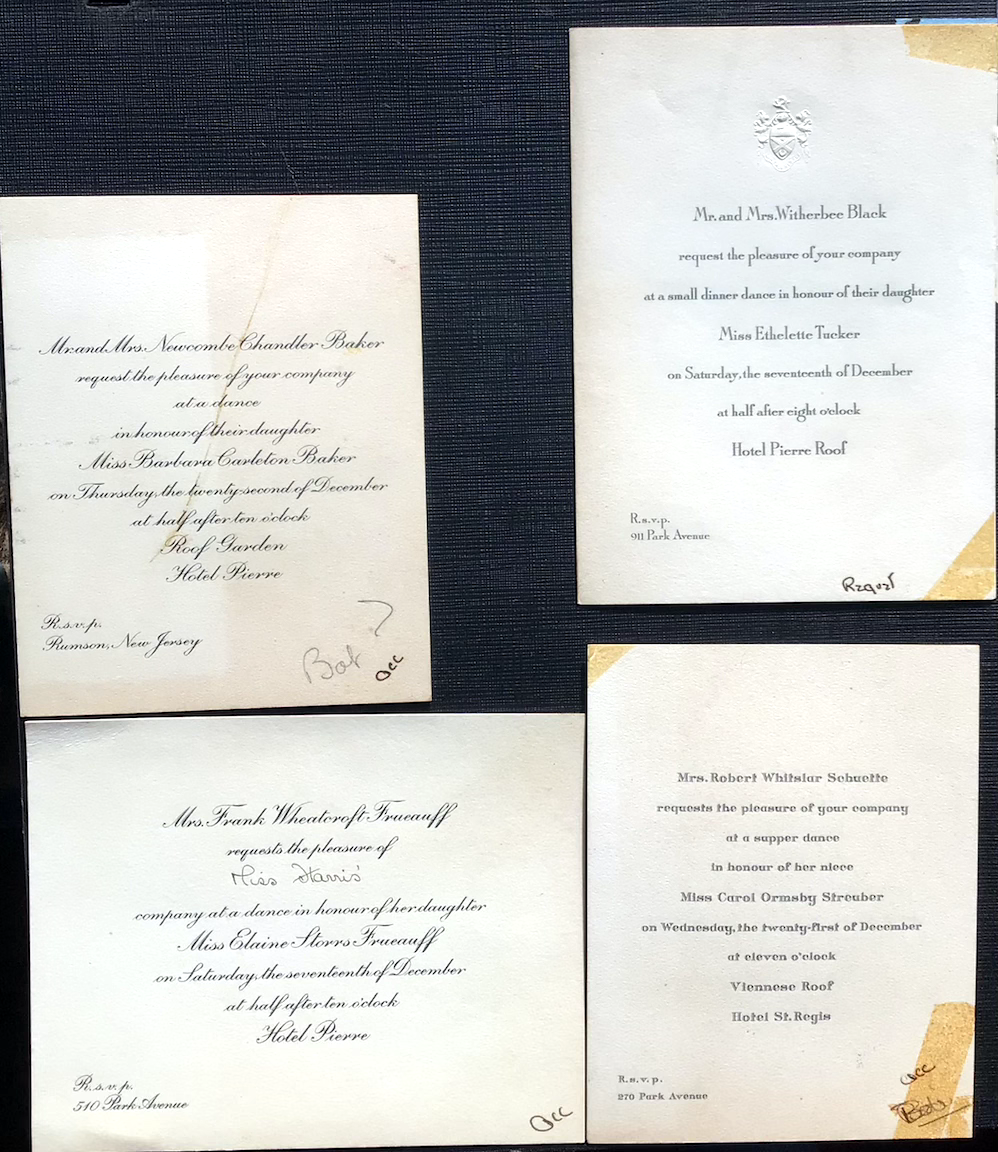 Mr. and Mrs. Newcombe Chandler Baker
request the pleasure of your company
at a dance
in honour of their daughter
Miss Barbara Carleton Baker
on Thursday, the twenty-second of December
at half after ten o'clock
Roof Garden
Hotel Pierre
R.s.v.p.
Rumson, New Jersey
Bob
acc
Mr. and Mrs. Witherbee Black
request the pleasure of your company
at a small dinner dance in honour of their daughter
Miss Ethelette Tucker
on Saturday, the seventeenth of December
at half after eight o'clock
Hotel Pierre Roof
R.s.v.p.
911 Park Avenue
Regret
Mrs. Frank Wheatcroft Frueauff
requests the pleasure of
Miss Harris'
company at a dance in honour of her daughter
Miss Elaine Storrs Frueauff
on Saturday, the seventeenth of December
at half after ten o'clock
Hotel Pierre
R.s.v.p.
510 Park Avenue
acc
Mrs. Robert Whitslar Schuette
requests the pleasure of your company
at a supper dance
in honour of her niece
Miss Carol Ormsby Streuber
on Wednesday, the twenty-first of December
at eleven o'clock
Viennese Roof
Hotel St. Regis
R.s.v.p.
270 Park Avenue
acc
Bob